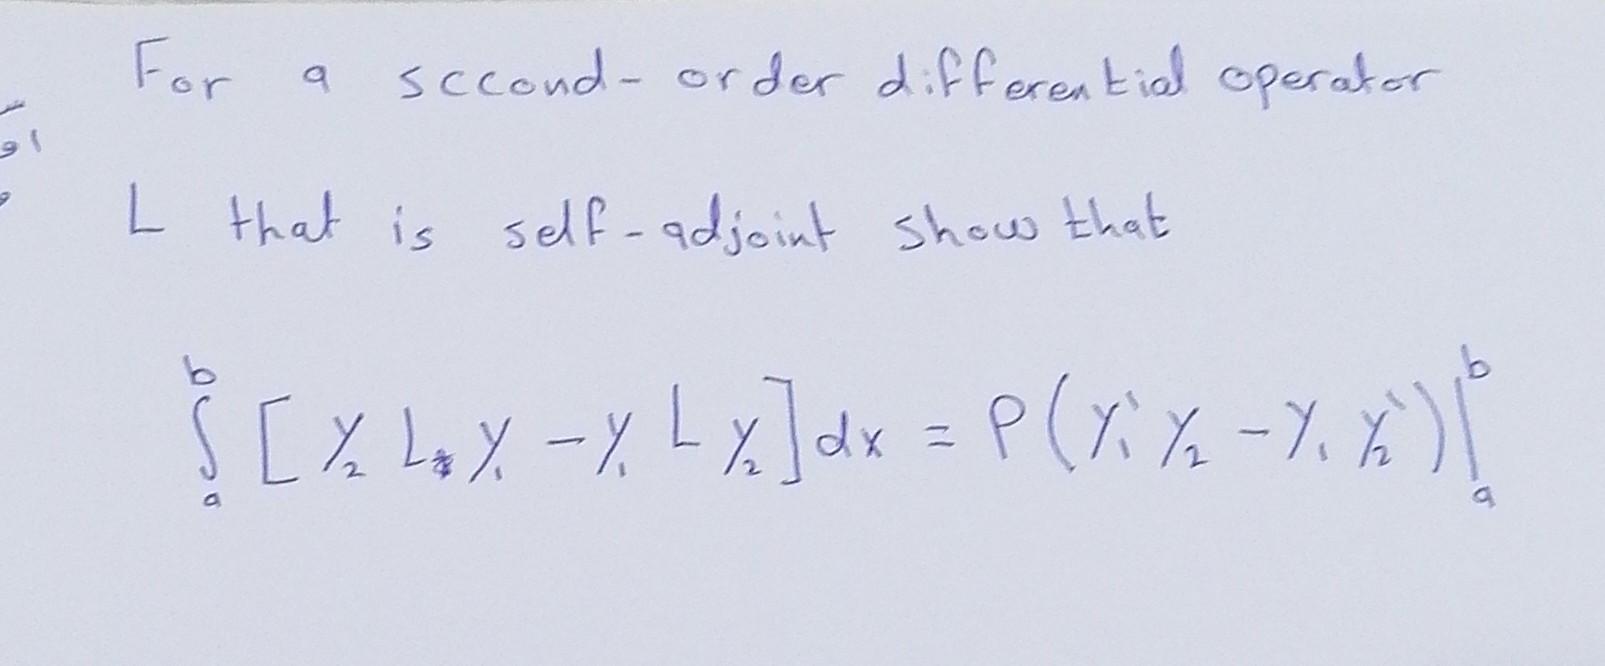 For a second-order differential operator
L that is self-adjoint show that
∫ₐᵇ [y₂ L y₁ - y₁ L y₂] dx = P(y₁' y₂ - y₁ y₂')|ₐᵇ